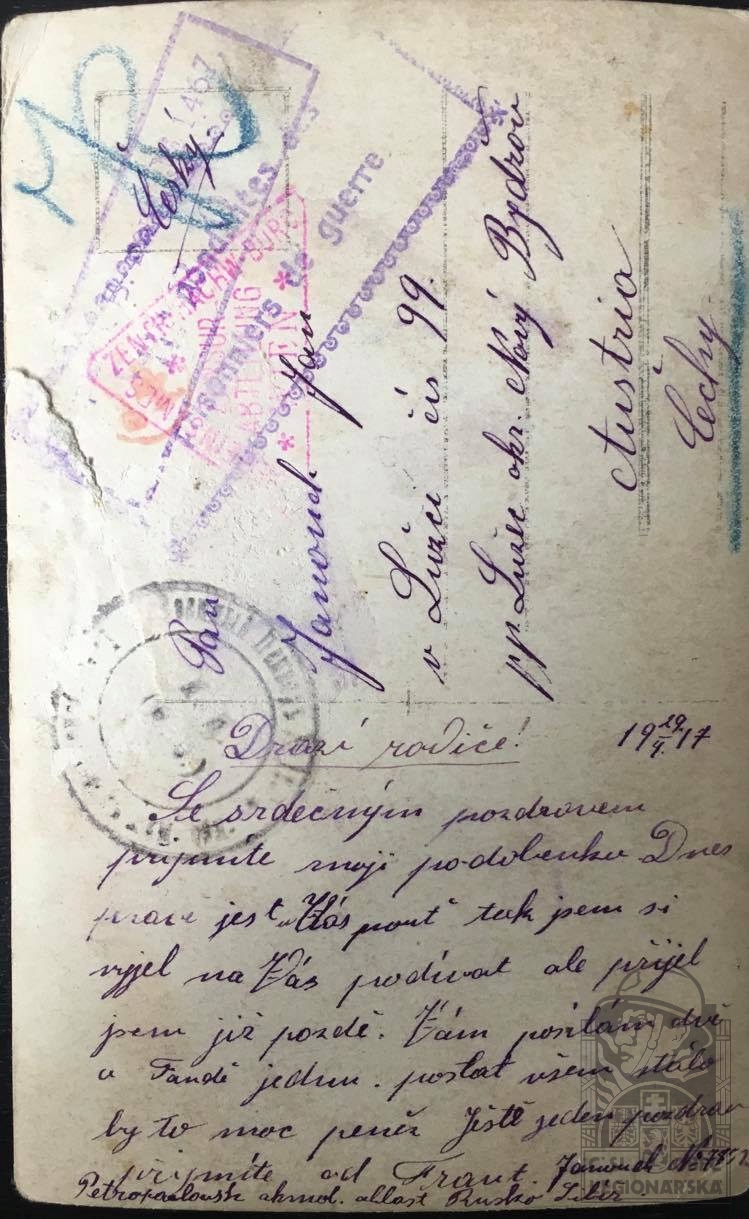 Česky
Correspondances des
prisonniers de guerre
WIEN
Pan
Janouch Jan
v Lužci čís 99.
pp. Lužec okr. Nový Bydžov
Austria
Čechy.
Drazí rodiče! 19 29/4. 17
Se srdečným pozdravem
prijmite moji podobenku Dnes
prave jest u Vás pouť tak jsem si
vyjel na Vás podívat ale přijel
jsem již pozdě. Vám posílám dvě
a Fandě jednu. poslat všem stálo
by to moc peněz Ještě jeden pozdrav
přijmite od Frant. Janouch No
Petropavlovsk akmol. oblast Rusko Sibiř
LEGIONÁŘSKÁ